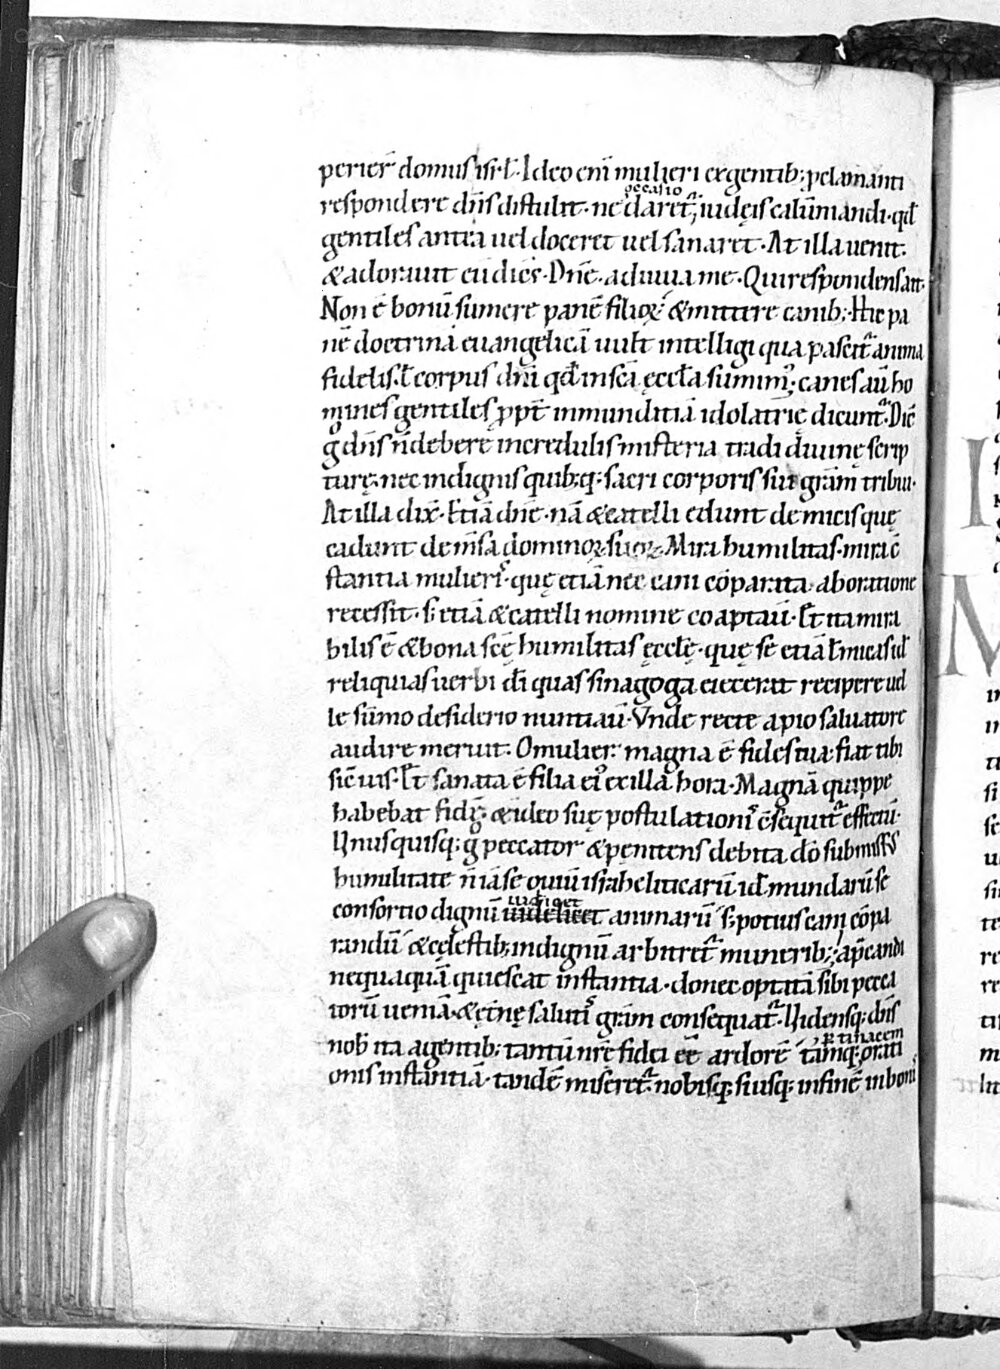 perier̄ domus isrl̄. Ideo enī mulieri ex gentib; pclamanti
respondere dn̄s distulit. ne occasio daret᷑ iudęis calūmiandi. qd̄
gentiles antea uel doceret uel sanaret. At illa uenit.
& adorauit eū dicēs. Dn̄e. adiuua me. Qui respondens ait.
Non ē bonū sumere panē filioꝝ & mittere canib;. Hic pa
nē doctrinā euangelicā uult intelligi qua pascit᷑ anima
fidelis. l̄ corpus dn̄i qd̄ in sc̄a ęccl̄a sumim᷒; canes aū ho
mines gentiles ꝓpt̄ inmunditiā idolatrię dicunt᷑. Dic̄
g̊ dn̄s n̄ debere incredulis misteria tradi diuinę scrip
turę. nec indignis quib;q; sacri corporis sui grām tribui.
At illa dix̄. Etiā dn̄e. nā & catelli edunt de micis quę
cadunt de mēsa dominoꝝ suoꝝ. Mira humilitas. mira c̄
stantia mulieris. quę etiā nec cani cōparata ab oratione
recessit. s; etiā & catelli nomine coaptauit. Et ita mira
bilis ē & bona sc̄ę humilitas ęccl̄ę. quę se etiā l̄ micas ul̄
reliquias uerbi dī quas sinagoga eiecerat recipere uel
le sūmo desiderio nuntiauit. Vnde recte a pio saluatore
audire meruit. O mulier. magna ē fides tua. fiat tibi
sic̄ uis. Et sanata ē filia ei᷒ ex illa hora. Magnā quippe
habebat fidē. & ideo suę postulationis cōsequit᷑ effectū.
Unusquisq; g̊ peccator & pęnitens debita dō submissus
humilitate n̄ iā se ouiū israheliticarū id mundarū se
consortio dignū iudicet uidelicet animarū. s; potius cani cōpa
randū & cęlestib; indignū arbitret᷑ munerib;. a pcandi
nequaquā quiescat instantia. donec optatā sibi pecca
torū ueniā. & ęt̄nę salutis grām consequat᷑. Uidensq; dn̄s
nob᷒ ita agentib; tantū nr̄ę fidei ēē ardorē ꝑtinacem tāmq; orati
onis instantiā. tandē miseret᷑ nobisq; suisq; in finē in boni